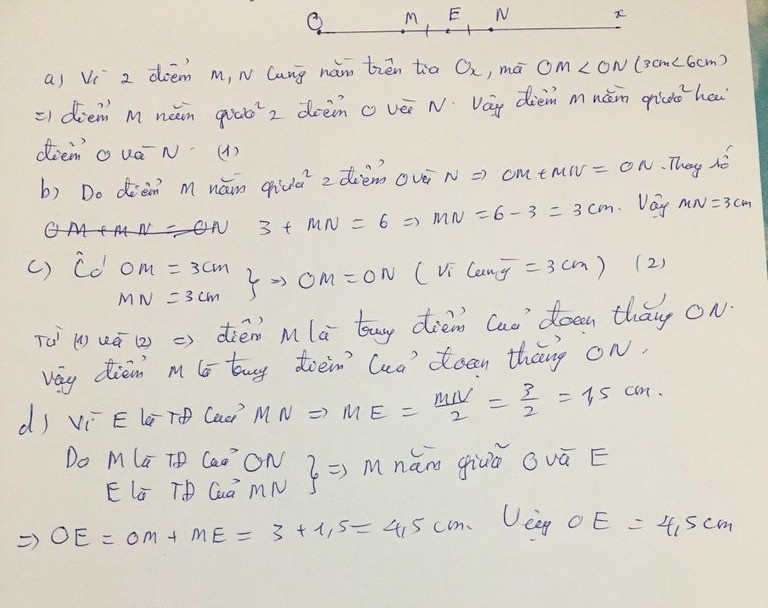 O M E N x
a) Vì 2 điểm M, N cùng nằm trên tia Ox, mà OM < ON (3cm < 6cm)
=> điểm M nằm giữa 2 điểm O và N. Vậy điểm M nằm giữa hai
điểm O và N. (1)
b) Do điểm M nằm giữa 2 điểm O và N => OM + MN = ON. Thay số
OM + MN = ON 3 + MN = 6 => MN = 6 - 3 = 3 cm. Vậy MN = 3 cm
c) Có OM = 3 cm
MN = 3 cm } => OM = ON ( Vì cùng = 3 cm ) (2)
Từ (1) và (2) => điểm M là trung điểm của đoạn thẳng ON.
Vậy điểm M là trung điểm của đoạn thẳng ON.
d) Vì E là TĐ của MN => ME = MN/2 = 3/2 = 1,5 cm.
Do M là TĐ của ON
E là TĐ của MN } => M nằm giữa O và E
=> OE = OM + ME = 3 + 1,5 = 4,5 cm. Vậy OE = 4,5 cm